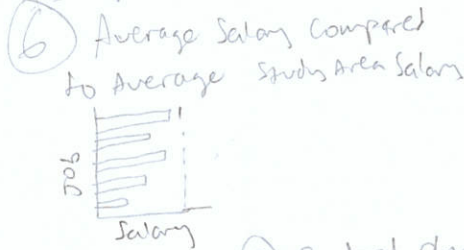 6 Average Salary Compared
to Average Study Area Salary
JOB
Salary